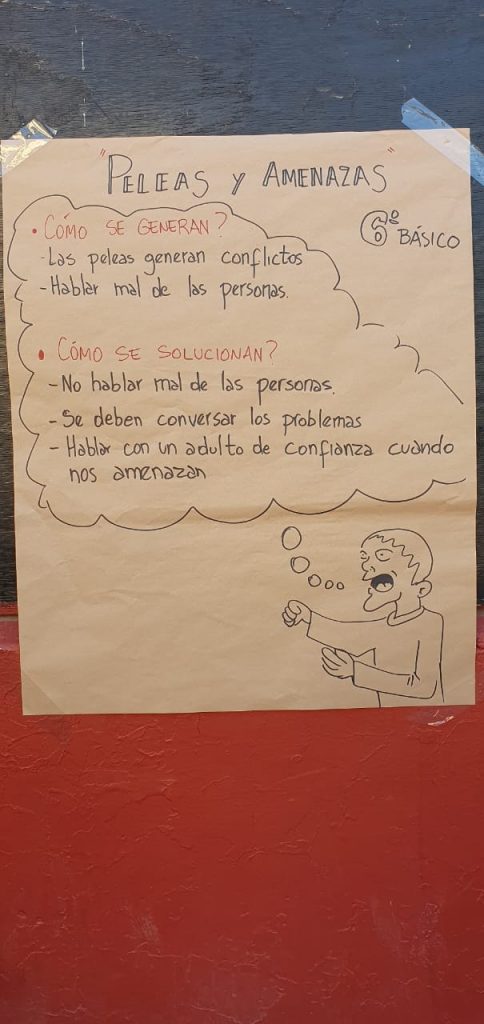 "PELEAS Y AMENAZAS"
6º BÁSICO
• CÓMO SE GENERAN?
- Las peleas generan conflictos
- Hablar mal de las personas.
• CÓMO SE SOLUCIONAN?
- No hablar mal de las personas.
- Se deben conversar los problemas
- Hablar con un adulto de confianza cuando
nos amenazan